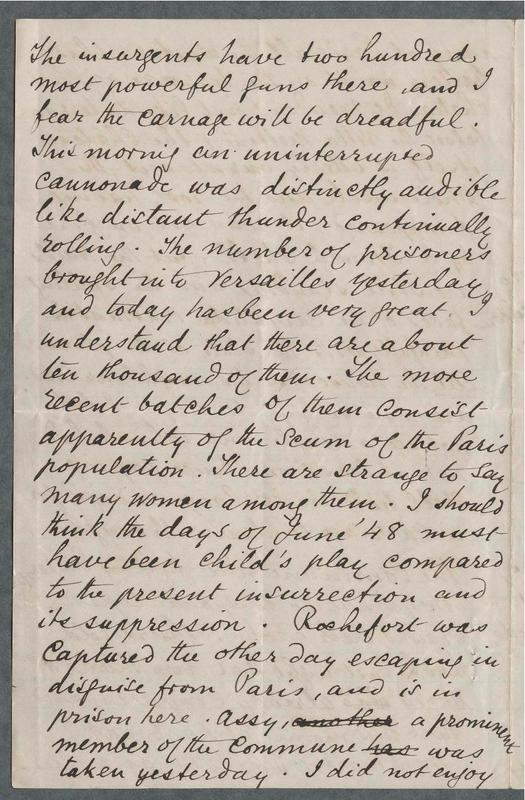 The insurgents have two hundred
most powerful guns there, and I
fear the carnage will be dreadful.
This mornig an uninterrupted
cannonade was distinctly audible
like distant thunder continually
rolling. The number of prisoners
brought into Versailles yesterday
and today has been very great. I
understand that there are about
ten thousand of them. The more
recent batches of them consist
apparently of the scum of the Paris
population. There are strange to say
many women among them. I should
think the days of June '48 must
have been child's play compared
to the present insurrection and
its suppression. Rochefort was
captured the other day escaping in
disguise from Paris, and is in
prison here. Assy, another a prominent
member of the Commune has was
taken yesterday. I did not enjoy